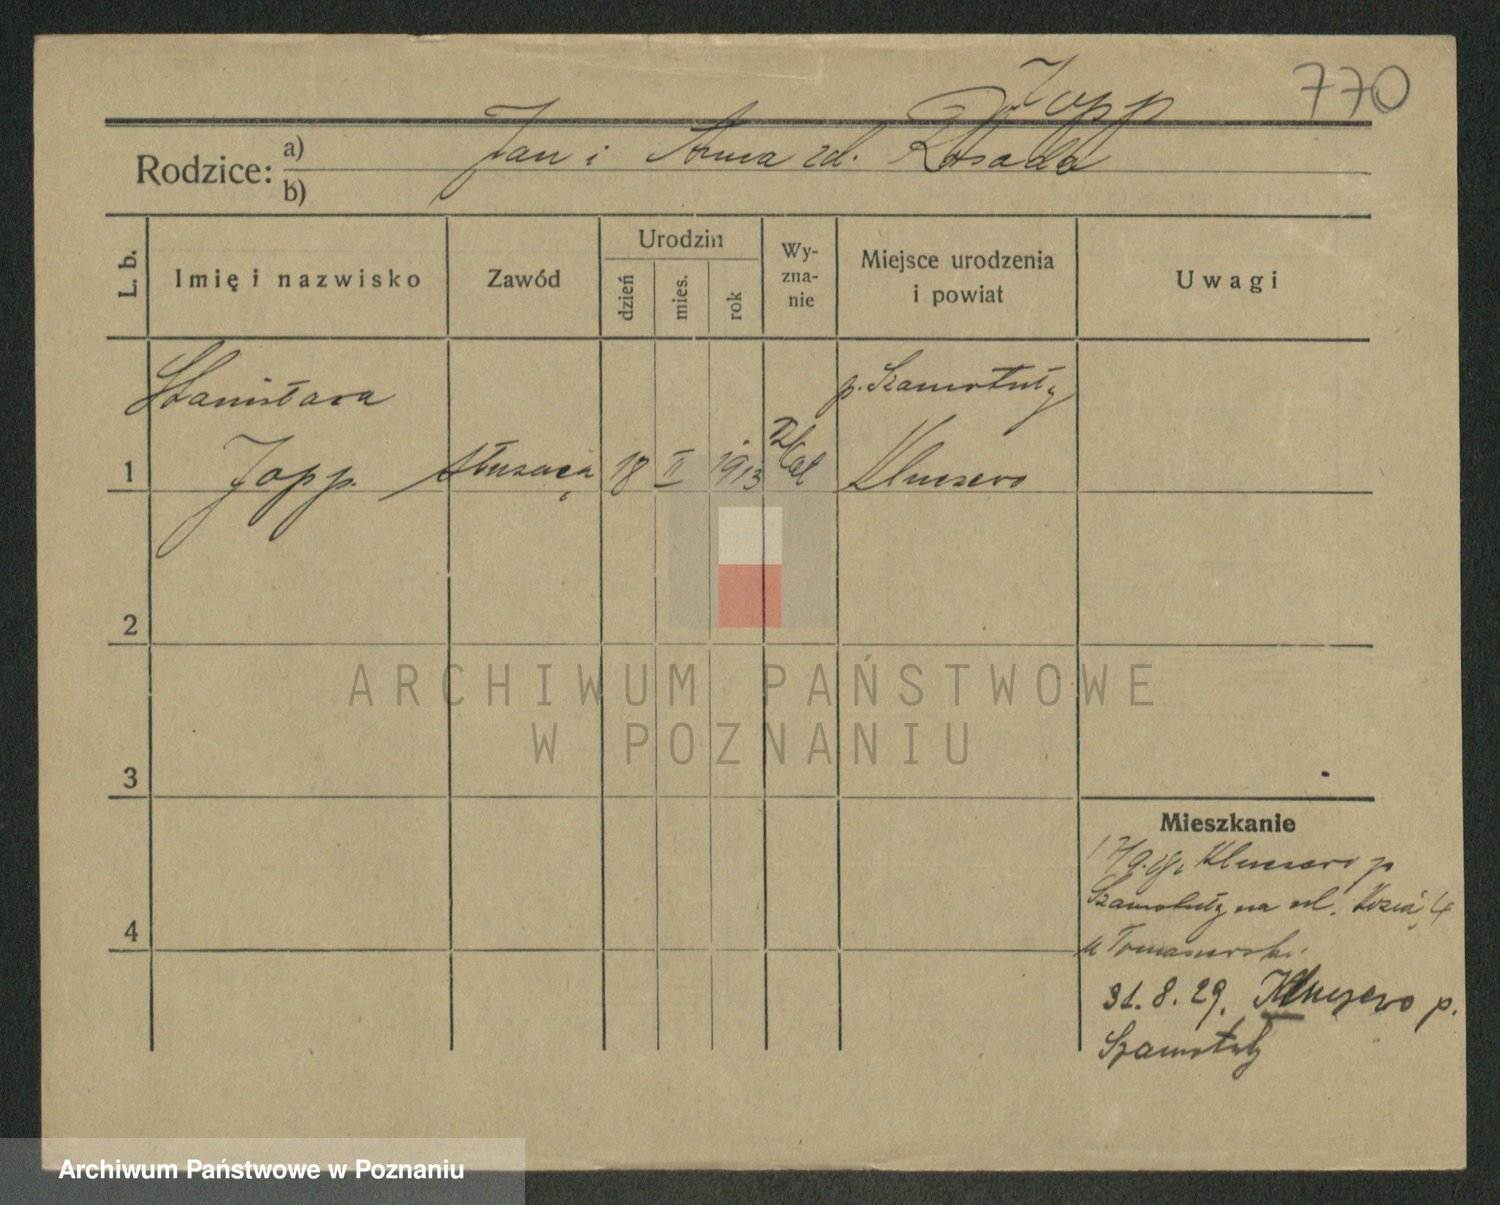 770
Jopp
Rodzice: a) b) Jan i Anna zd. Rosada
L. b.
Imię i nazwisko
Zawód
Urodzin
dzień
mies.
rok
Wy-
zna-
nie
Miejsce urodzenia
i powiat
Uwagi
Stanisława
p. Szamotuły
1 Jopp. służąca 18 II 1913 Kat Kluczewo
2
3
4
ARCHIWUM PAŃSTWOWE
W POZNANIU
Mieszkanie
Kluczewo p
Szamotuły na ul. 4
u Tomaszewski.
31.8.29. Kluczewo p.
Szamotuły
Archiwum Państwowe w Poznaniu